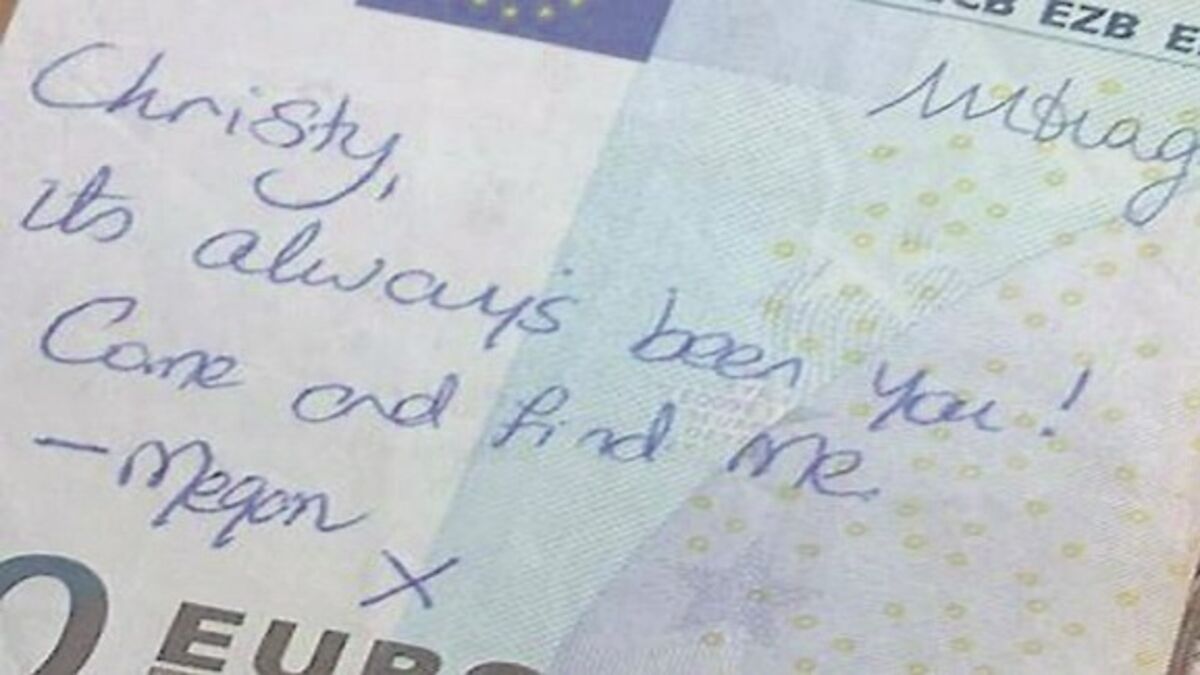 ECB EZB
MDrag
Christy,
its always been you!
Come and find me.
- Megan
X
0 EURO